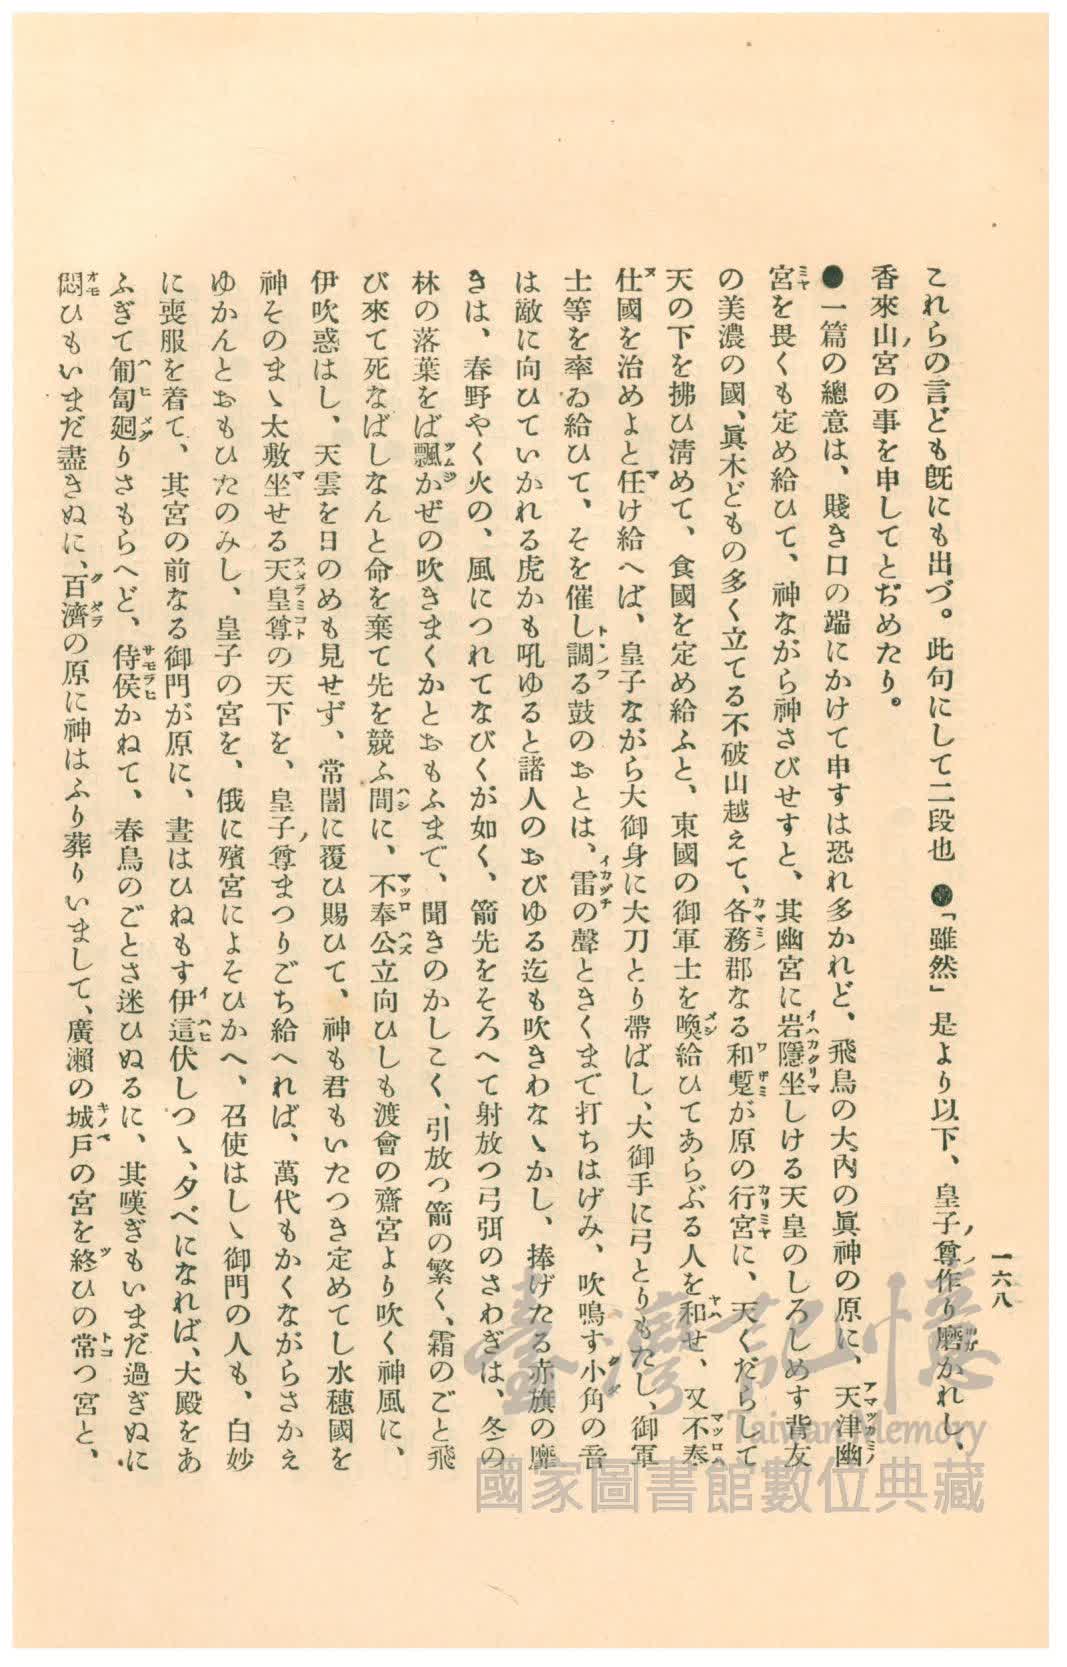 一六八
これらの言ども既にも出づ。此句にして二段也 ●「雖然」是より以下、皇子ノ尊作り磨かれし、
香來山ノ宮の事を申してとぢめたり。
●一篇の總意は、賤き口の端にかけて申すは恐れ多かれど、飛鳥の大內の眞神の原に、天津幽
宮を畏くも定め給ひて、神ながら神さびせすと、其幽宮に岩隱坐しける天皇のしろしめす背友
の美濃の國、眞木どもの多く立てる不破山越えて、各務郡なる和蹔が原の行宮に、天くだらして
天の下を拂ひ淸めて、食國を定め給ふと、東國の御軍士を喚給ひてあらぶる人を和せ、又不奉
仕國を治めよと任け給へば、皇子ながら大御身に大刀とり帶ばし、大御手に弓とりもたし、御軍
士等を率ゐ給ひて、そを催し調る鼓のおとは、雷の聲ときくまで打ちはげみ、吹鳴す小角の音
は敵に向ひていかれる虎かも吼ゆると諸人のおびゆる迄も吹きわなゝかし、捧げたる赤旗の靡
きは、春野やく火の、風につれてなびくが如く、箭先をそろへて射放つ弓弭のさわぎは、冬の
林の落葉をば飄かぜの吹きまくかとおもふまで、聞きのかしこく、引放つ箭の繁く、霜のごと飛
び來て死なばしなんと命を棄て先を競ふ間に、不奉公立向ひしも渡會の齋宮より吹く神風に、
伊吹惑はし、天雲を日のめも見せず、常闇に覆ひ賜ひて、神も君もいたつき定めてし水穗國を
神そのまゝ太敷坐せる天皇尊の天下を、皇子ノ尊まつりごち給へれば、萬代もかくながらさかえ
ゆかんとおもひたのみし、皇子の宮を、俄に殯宮によそひかへ、召使はしゝ御門の人も、白妙
に喪服を着て、其宮の前なる御門が原に、晝はひねもす伊這伏しつゝ、夕べになれば、大殿をあ
ふぎて匍匐廻りさもらへど、侍侯かねて、春鳥のごとさ迷ひぬるに、其嘆ぎもいまだ過ぎぬに
悶ひもいまだ盡きぬに、百濟の原に神はふり葬りいまして、廣瀨の城戶の宮を終ひの常つ宮と、
臺灣記憶
Taiwan Memory
國家圖書館數位典藏